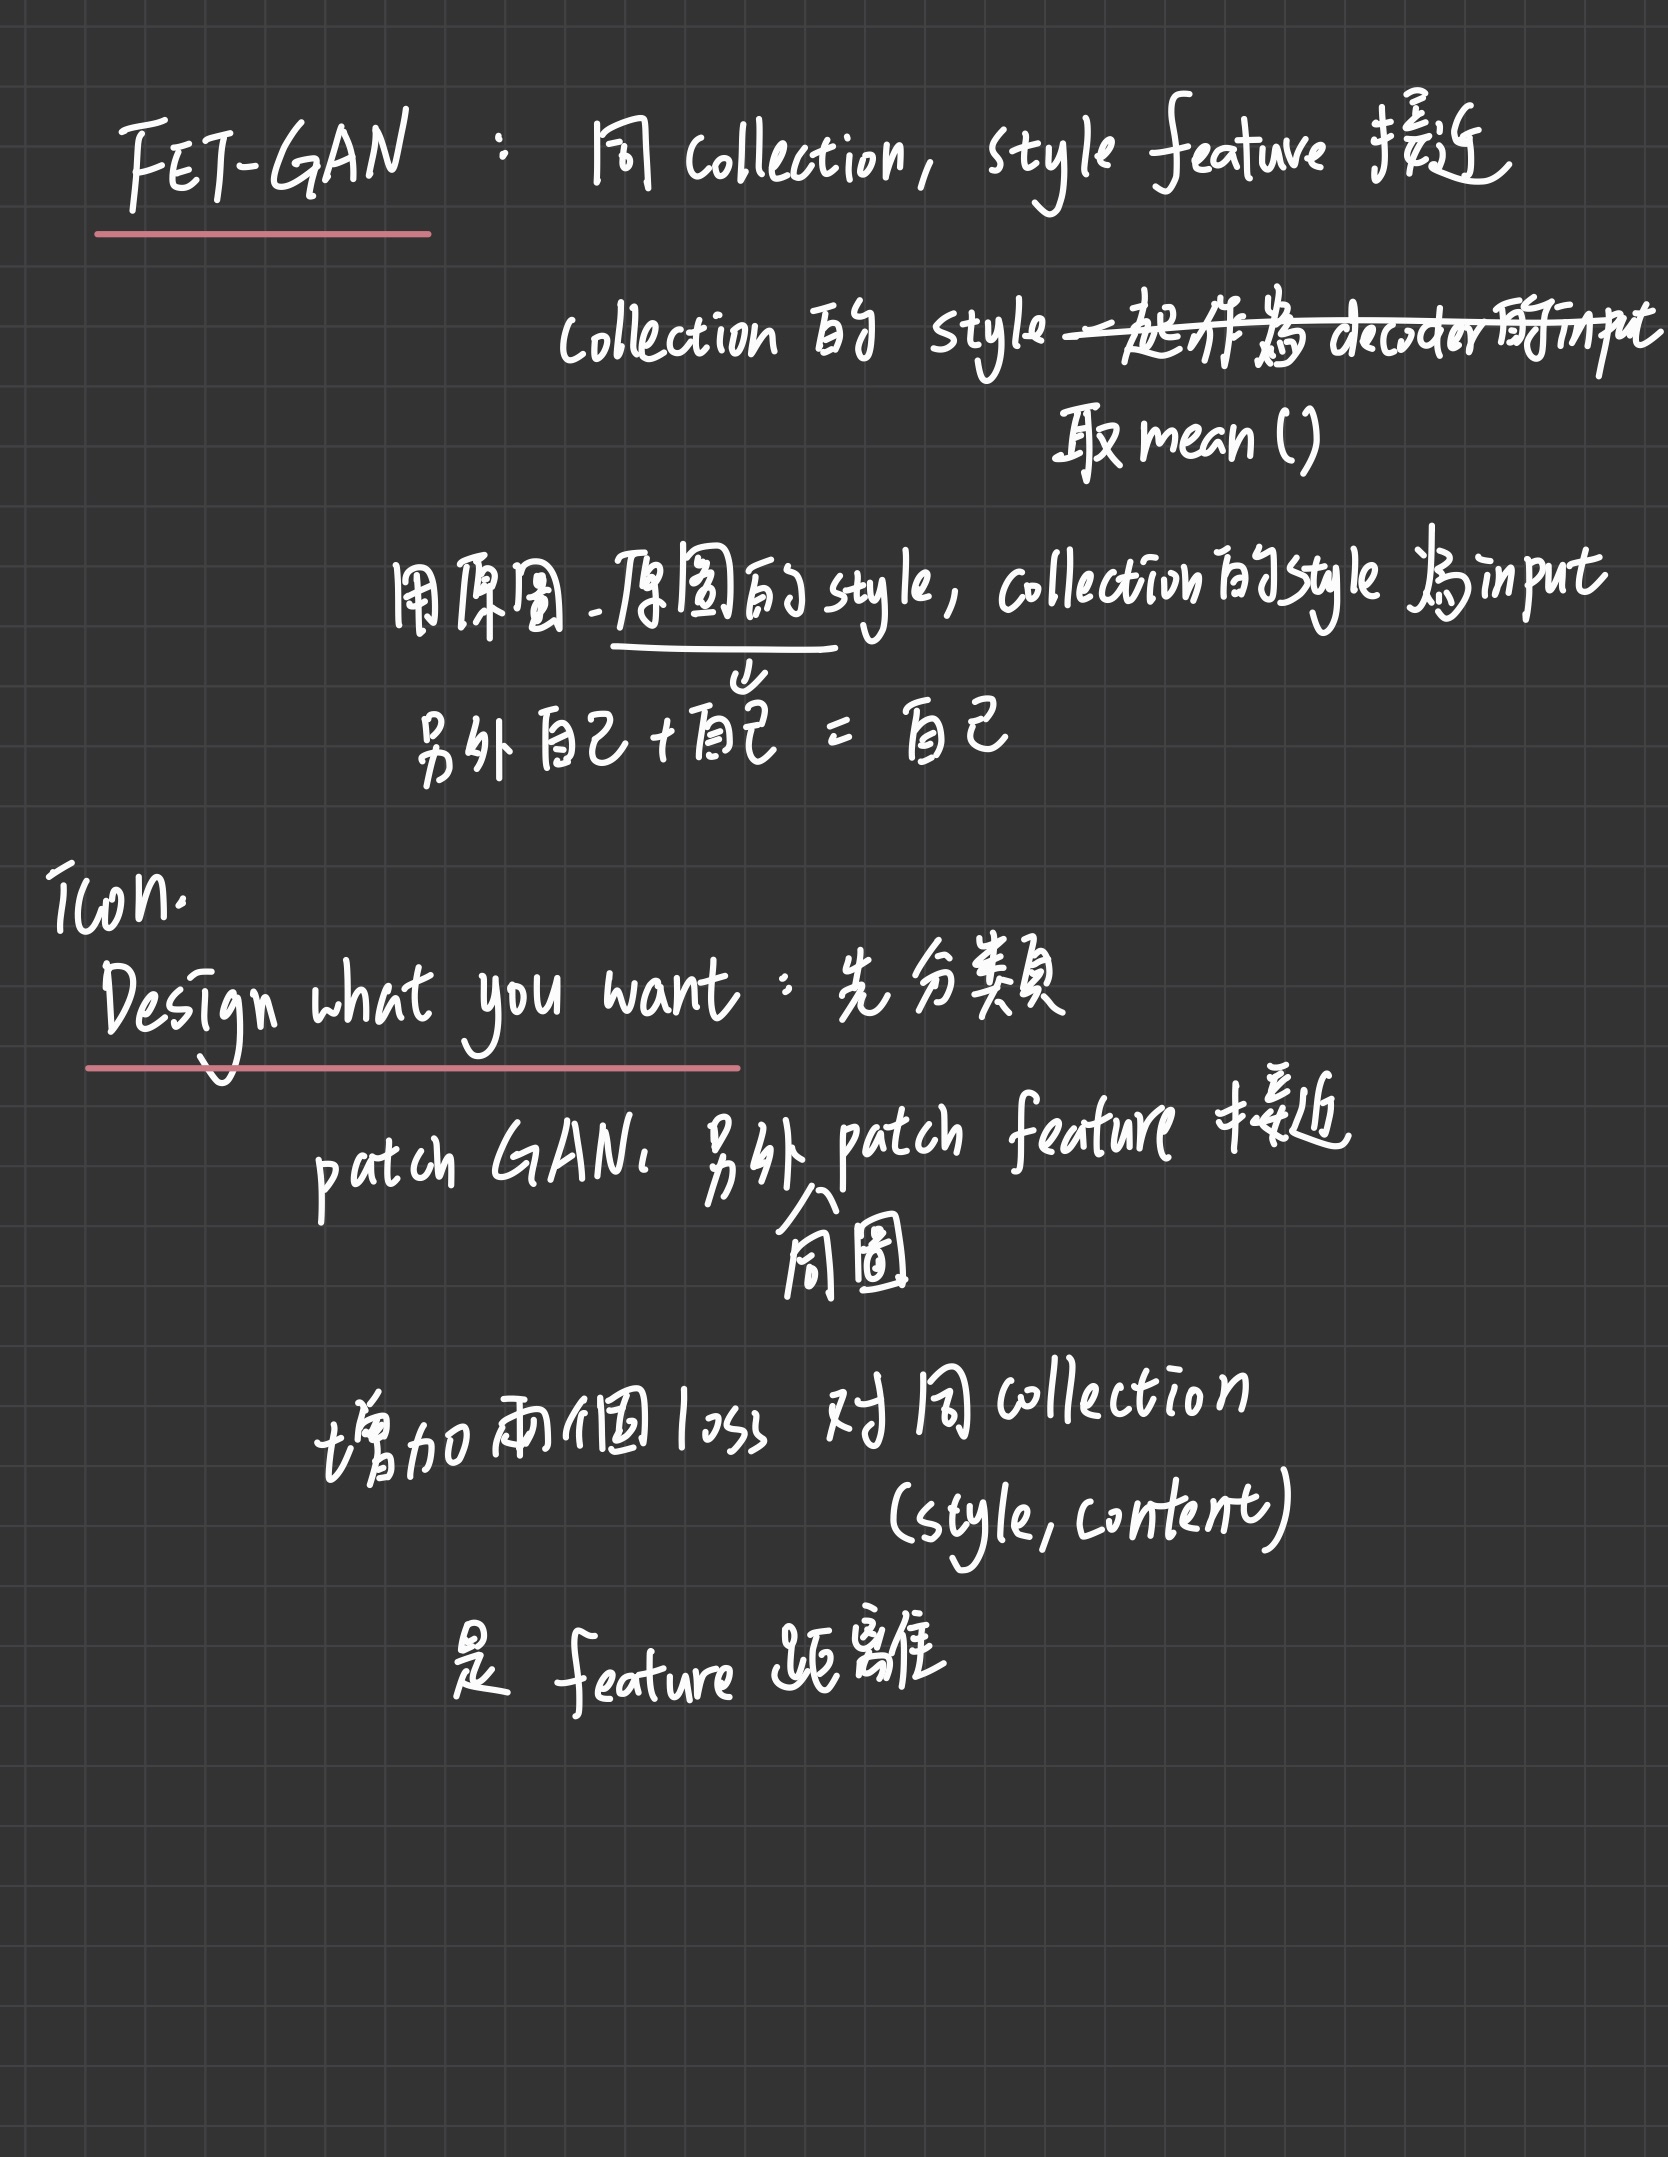 FET-GAN : 同 collection, style feature 接近
collection 的 style 一起作為 decoder 的 input
取 mean ()
用原圖. 原圖的 style, collection 的 style 為 input
另外 自己 + 自己 = 自己
icon.
Design what you want : 先分類
patch GAN. 另外 patch feature 接近
同圖
增加兩個 loss 对同 collection
(style, content)
是 feature 距離